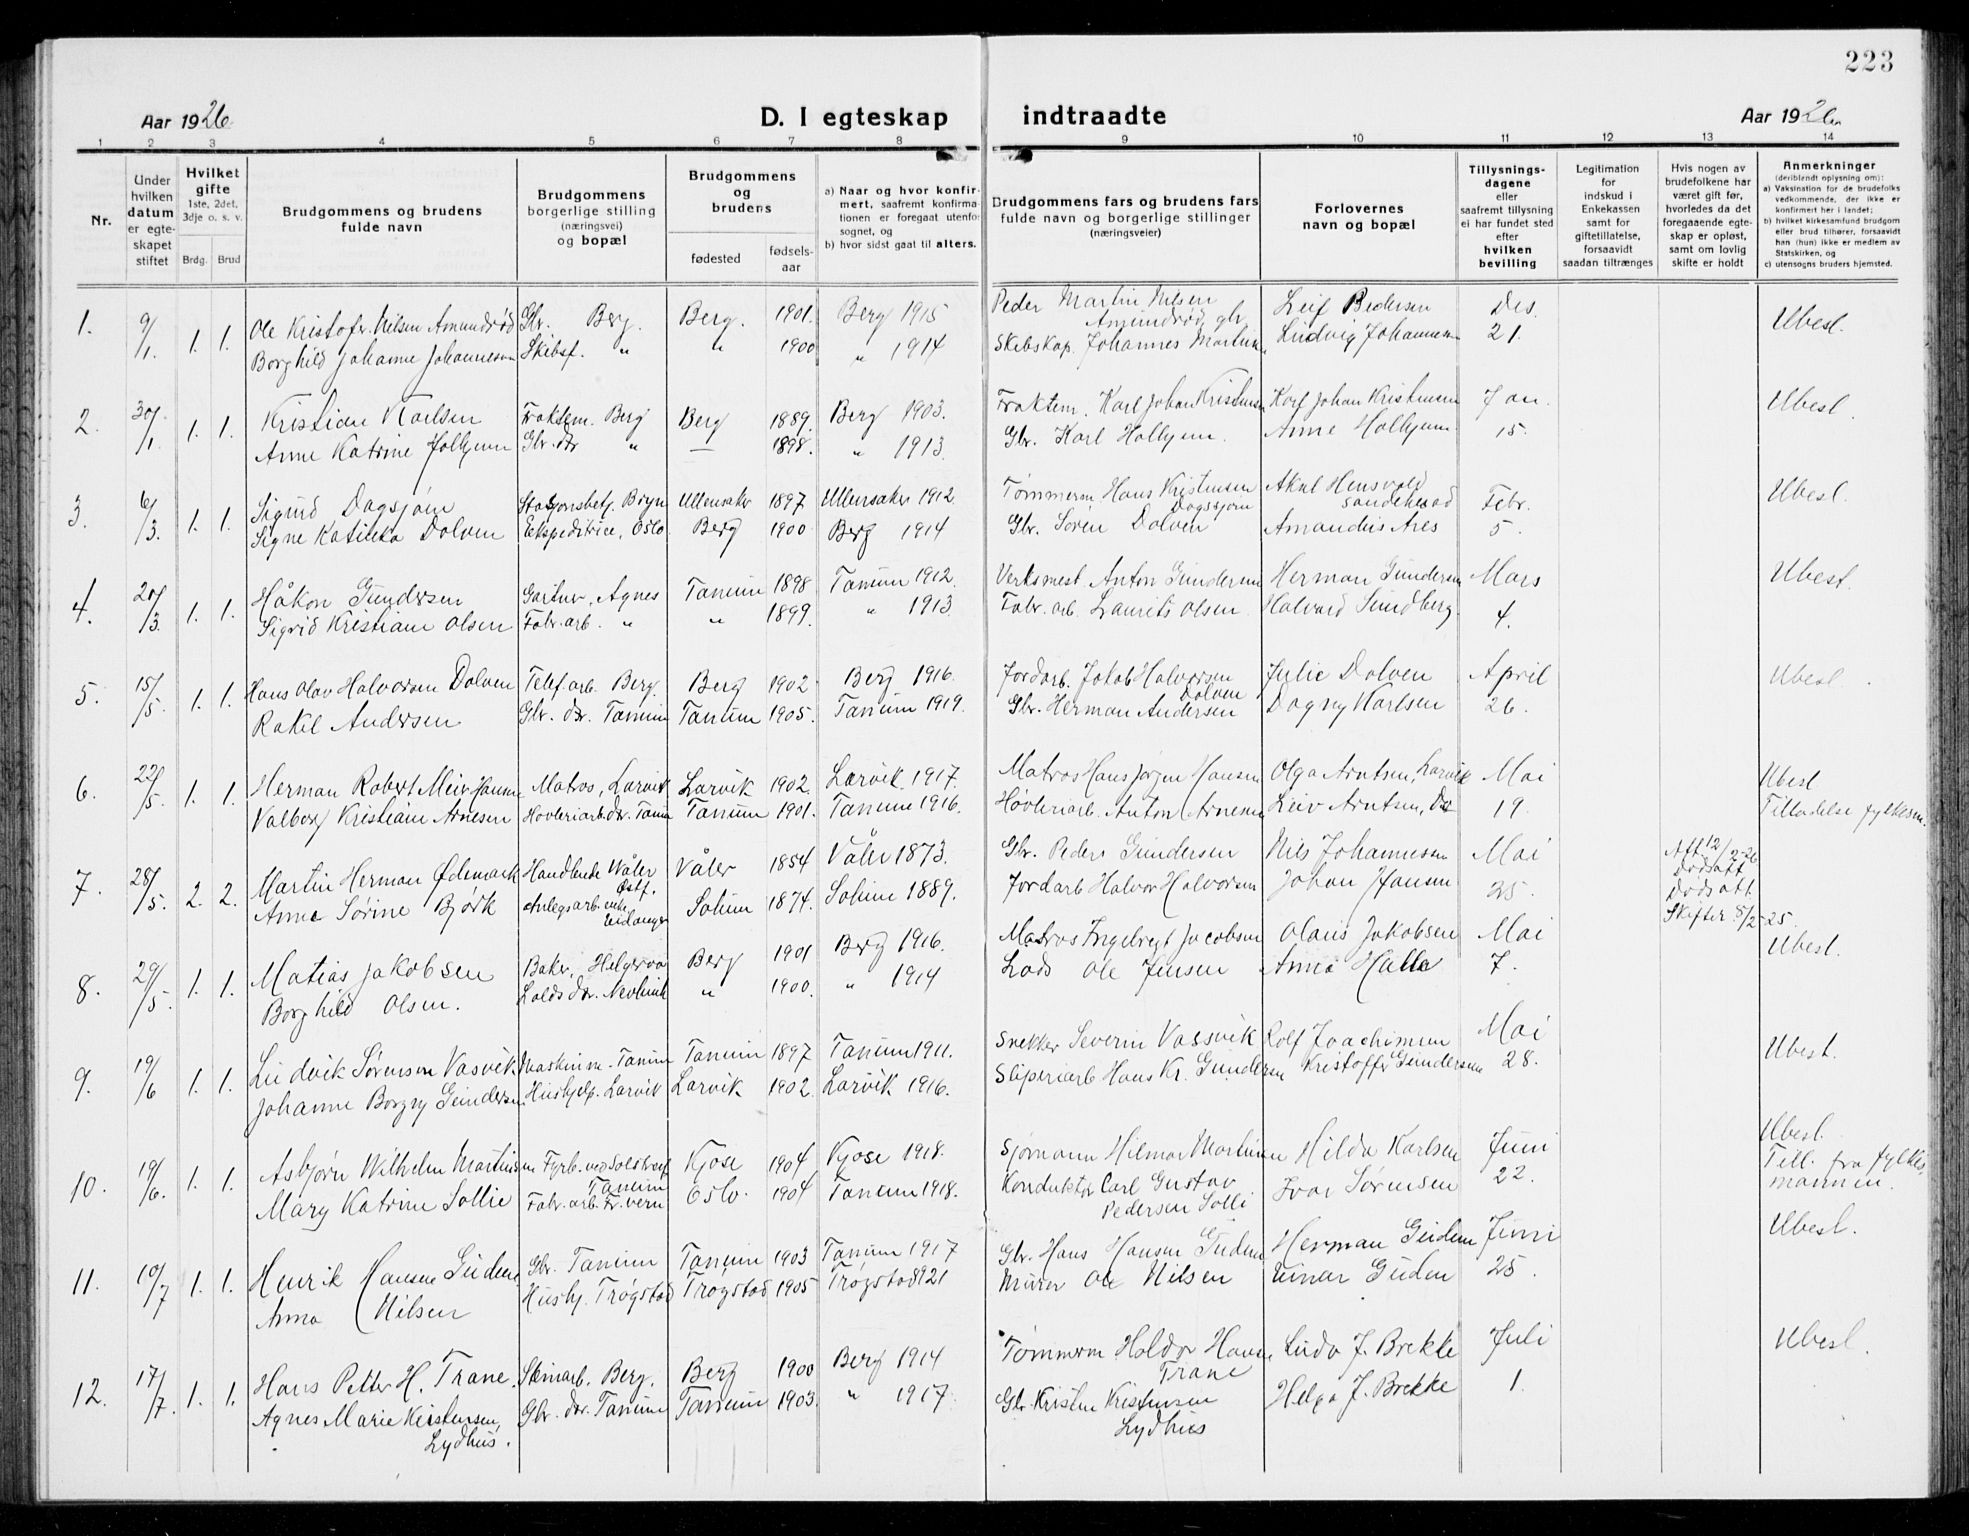 223
Aar 1926. D. I egteskap indtraadte Aar 1926.
1 2 3 4 5 6 7 8 9 10 11 12 13 14
Nr.
Under hvilken datum er egteskapet stiftet
Hvilket gifte 1ste, 2det, 3dje o. s. v.
Brdg. Brud
Brudgommens og brudens fulde navn
Brudgommens borgerlige stilling (næringsvei) og bopæl
Brudgommens og brudens
fødested fødselsaar
a) Naar og hvor konfirmert, saafremt konfirmationen er foregaat utenfor sognet, og
b) hvor sidst gaat til alters.
Brudgommens fars og brudens fars fulde navn og borgerlige stillinger (næringsveier)
Forlovernes navn og bopæl
Tillysningsdagene eller saafremt tillysning ei har fundet sted efter hvilken bevilling
Legitimation for indskud i Enkekassen samt for giftetillatelse, forsaavidt saadan tiltrænges
Hvis nogen av brudefolkene har været gift før, hvorledes da det foregaaende egteskap er opløst, samt om lovlig skifte er holdt
Anmerkninger (deriblendt oplysning om):
a) Vaksination for de brudefolks vedkommende, der ikke er konfirmert her i landet;
b) hvilket kirkesamfund brudgom eller brud tilhører, forsaavidt han (hun) ikke er medlem av Statskirken, og
c) utensogns bruders hjemsted.
1. 9/1. 1. 1. Ole Kristofer Nilsen Amundrød Gbr. Berg. Berg. 1901. Berg 1915 Peder Martin Nilsen Amundrød gbr Leif Pedersen Des. Ubesl.
Borghild Johanne Johannesen Skibsf. " " 1900 " 1914 Skibskap. Johannes Martin Ludvig Johannesen 21.
2. 30/1. 1. 1. Kristian Karlsen Fraktem. Berg Berg 1889. Berg 1903. Fraktem. Karl Johan Kristensen Karl Johan Kristensen Jan. Ubesl.
Anne Katrine Holljem Gbr. dr " — 1898. " 1913. Gbr. Karl Holljem. Anne Holljem 15.
3. 6/3. 1. 1. Sigurd Dagsjøin Stasjonsbetj. Bryn Ullensaker 1897 Ullensaker 1912 Tømmerm Hans Kristensen Dagssjøin Sandehered Febr. Ubesl.
Signe Katinka Dolven Ekspeditrice, Oslo Berg 1900 Berg 1914 Gbr. Søren Dolven Amandus Ares 5.
4. 20/3. 1. 1. Håkon Gundersen Gartner, Agnes Tanum 1898 Tanum 1912. Verksmest. Anton Gundersen Herman Gundersen Mars Ubesl.
Sigrid Kristiane Olsen Fabr. arb. " " 1899. " 1913 Fabr. arb. Laurits Olsen. Halvard Sundberg. 4.
5. 15/5. 1. 1. Hans Olav Halvorsen Dolven Telef. arb. Berg. Berg 1902 Berg 1916. Jordarb. Jakob Halvorsen Dolven Julie Dolven April Ubesl.
Rakel Andersen Gbr. dr. Tanum Tanum 1905. Tanum 1919. Gbr. Herman Andersen Dagny Karlsen 26.
6. 22/5. 1. 1. Herman Robert Meier Hansen Matros, Larvik Larvik 1902. Larvik 1917. Matros Hans Jørgen Hansen Olga Arntsen, Larvik Mai Ubesl
Valborg Kristiane Arnesen Høvleriarb. dr. Tanum Tanum 1901. Tanum 1916. Høvleriarb. Anton Arnesen Leiv Arntsen, Do 19. Tilladelse fylkesm.
7. 28/5. 2. 2. Martin Herman Ødemark Handlende Våler Østf. Våler 1854 Våler 1873. Gbr. Peder Gundersen Nils Johannesen Mai Att 12/2-26 Dødsatt
Anne Sørine Bjørk Anlegsarb. enke Eidanger Solum 1874. Solum 1889. Jordarb Halvor Halvorsen Johan Hansen 25. Dødsatt. Skifter 5/2-25.
8. 29/5. 1. 1. Matias Jakobsen Baker, Helgeroa Berg 1901 Berg 1916. Matros Ingelregt Jacobsen Olaus Jakobsen Mai Ubesl.
Borghild Olsen. Lodsdr. Nevlunh " 1900. " 1914 Lods Ole Jensen Anna Halle 7.
9. 19/6 1. 1. Ludvik Sørensen Vasvik Maskinm. Tanum Tanum 1897 Tanum 1911. Snekker Severin Vassvik Rolf Joachimsen Mai Ubesl.
Johanne Borgny Gundersen Hushjelp. Larvik Larvik 1902. Larvik 1916. Sliperiarb Hans Kr. Gundersen Kristoffer Gundersen 28.
10. 19/6. 1. 1. Asbjørn Wilhelm Martinsen Fyrb. ved Solstverf Tanum Kjose 1904 Kjose 1918. Sjømann Hilmar Martinsen Hilda Karlsen Juni Ubesl.
Mary Katrine Sollie Fabr. arb. Fr.vern Oslo. 1904 Tanum 1918. Konduktør Carl Gustav Pedersen Solli Ivar Sørensen 22. Till. fra fylkesmannen.
11. 10/7 1. 1. Henrik Hansen Guden Gbr. Tanum Tanum 1903 Tanum 1917 Gbr. Hans Hansen Guden Herman Guden Juni Ubesl.
Anna Nilsen Hushj. Trøgstad Trøgstad 1905 Trøgstad 1921 Murer Ole Nilsen Einar Guden 25.
12. 17/7. 1. 1. Hans Petter H. Trane. Stenarb. Berg. Berg 1900 Berg 1914 Tømmerm Haldor Hansen Trane Luda J. Brekke Juli Ubesl.
Agnes Marie Kristensen, Lydhus. Gbr. dr. Tanum Tanum 1903. " 1917. Gbr. Kristen Kristensen Lydhus Helga J. Brekke 1.